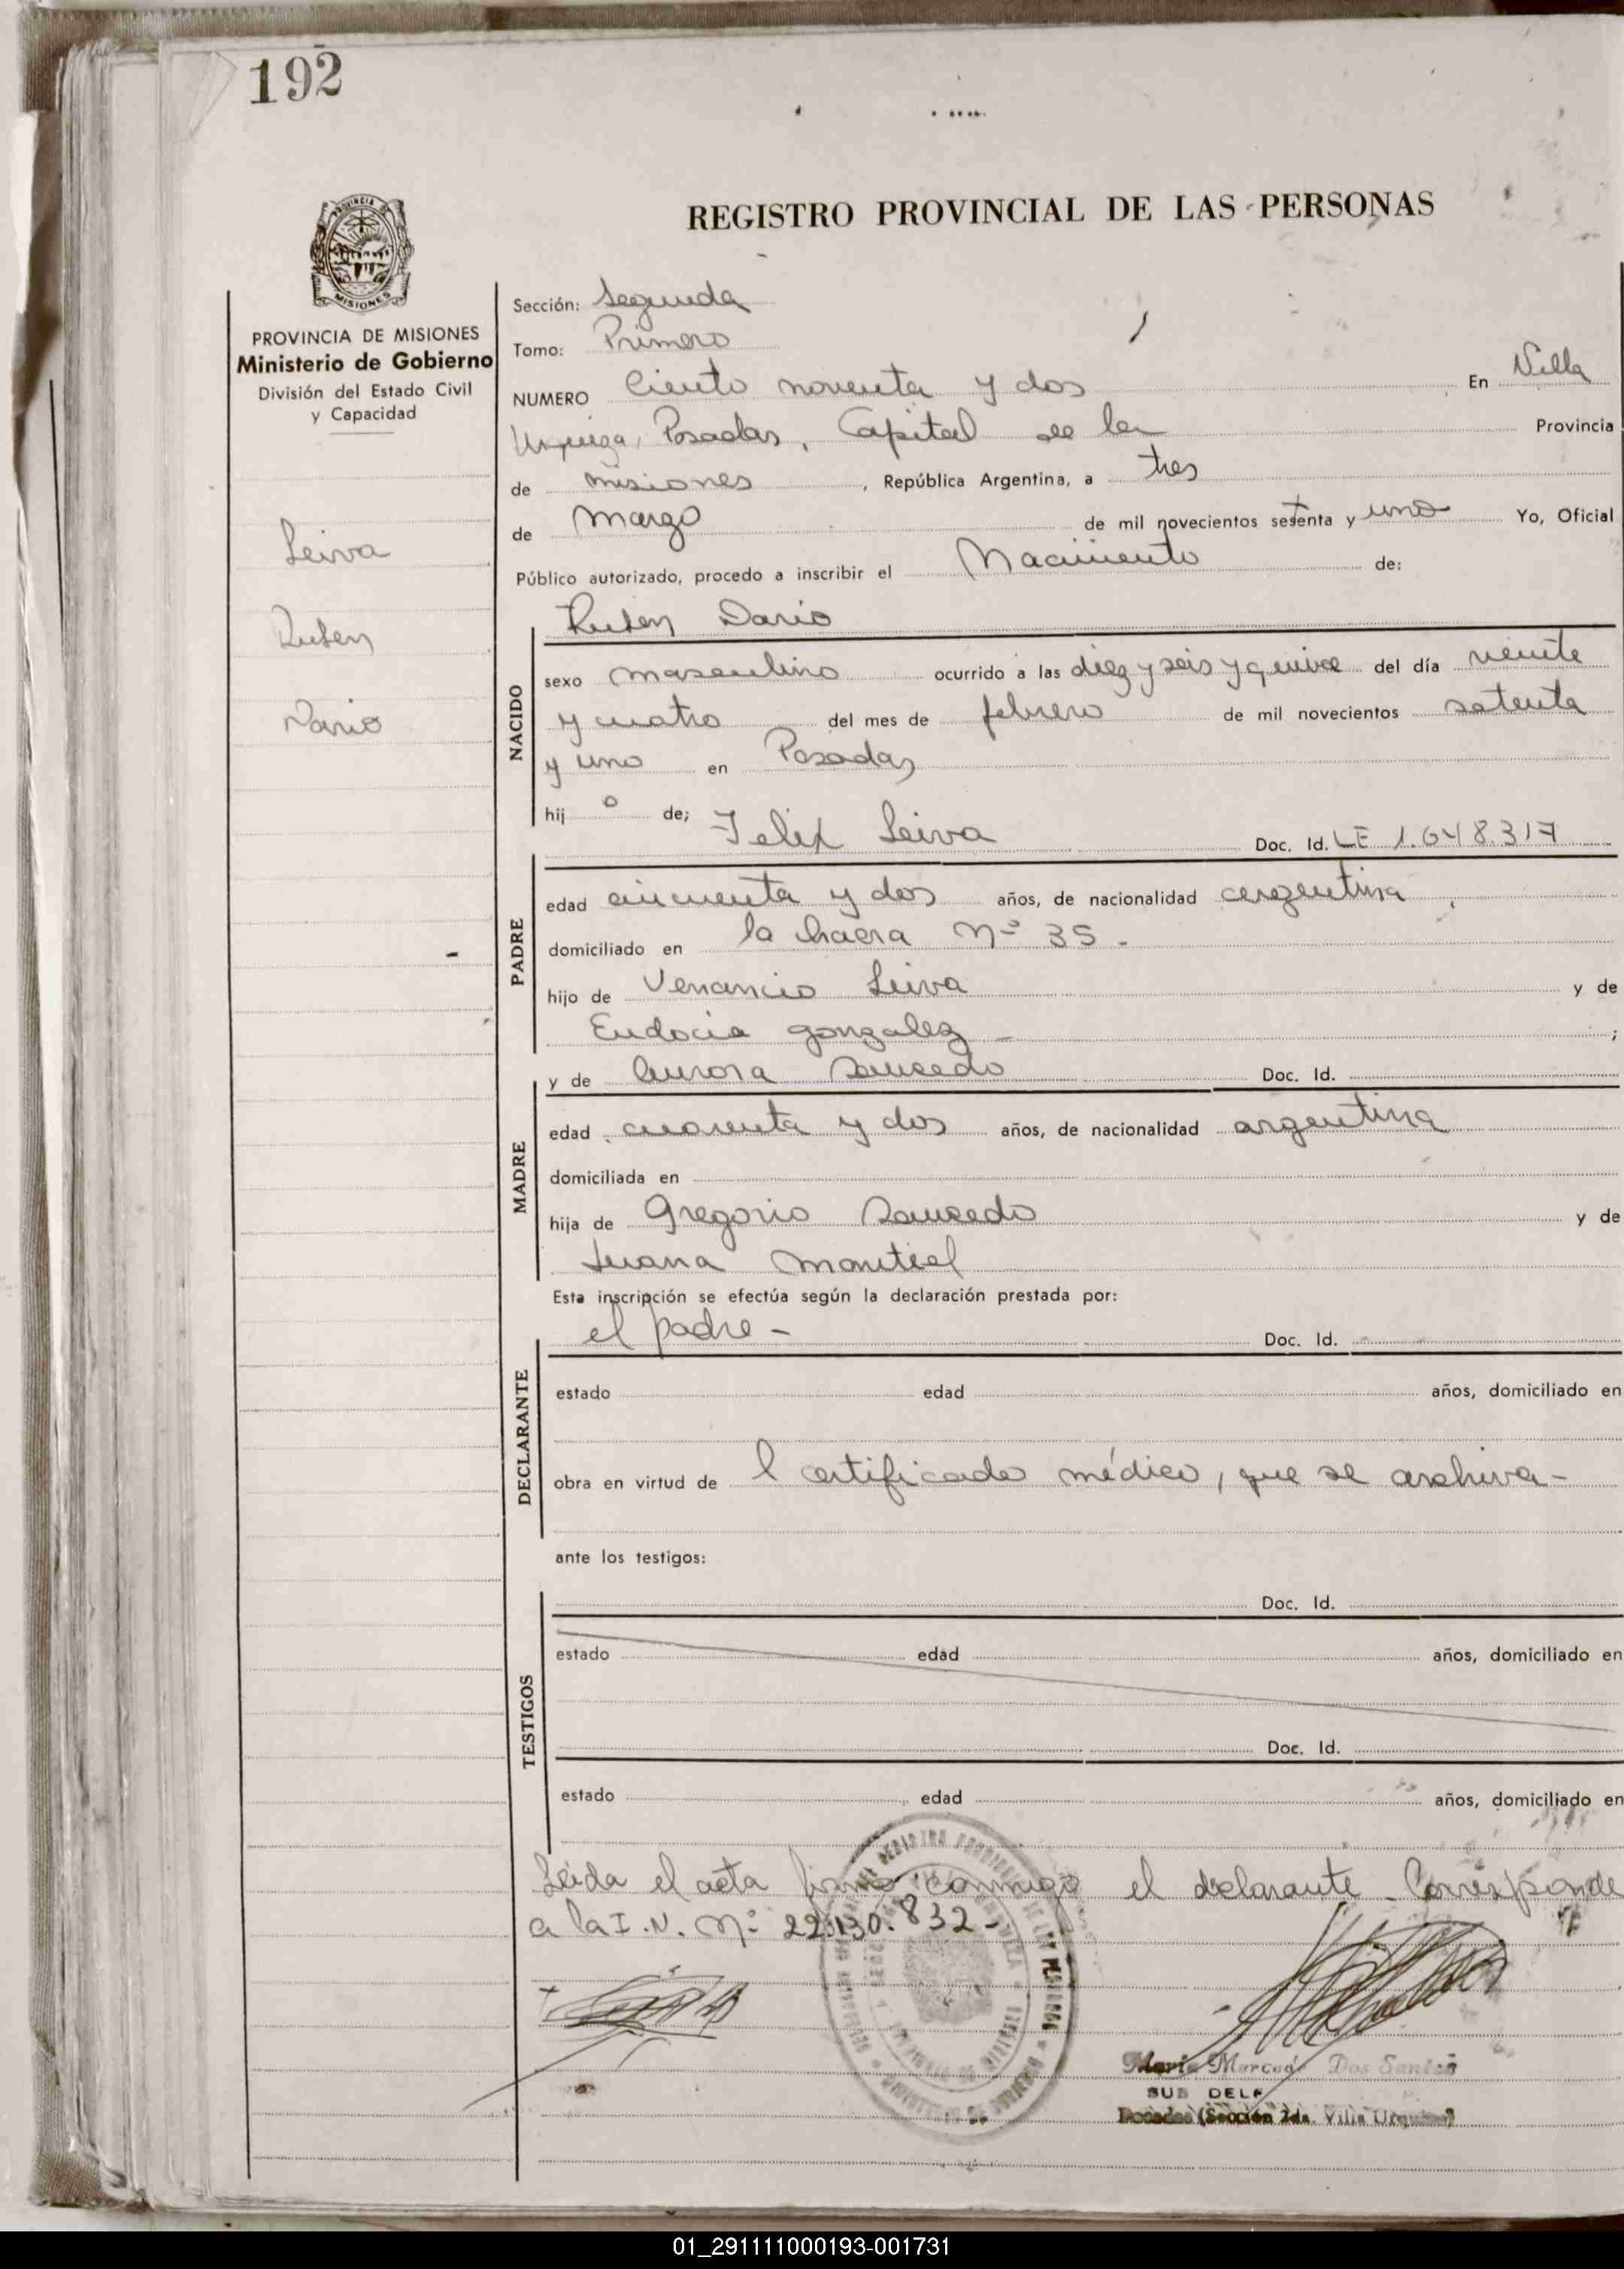 192
REGISTRO PROVINCIAL DE LAS PERSONAS
PROVINCIA DE MISIONES
Ministerio de Gobierno
División del Estado Civil
y Capacidad
Leiva
Ruben
Dario
Sección: Segunda
Tomo: Primero
NUMERO Ciento noventa y dos En Villa
Urquiza, Posadas, Capital de la Provincia
de misiones, República Argentina, a tres
de marzo de mil novecientos setenta y uno Yo, Oficial
Público autorizado, procedo a inscribir el Nacimiento de:
Ruben Dario
NACIDO
sexo masculino ocurrido a las diez y seis y quince del día veinte
y cuatro del mes de febrero de mil novecientos setenta
y uno en Posadas
hijo de; Felix Leiva Doc. Id. LE 1.648.317
PADRE
edad cincuenta y dos años, de nacionalidad argentina,
domiciliado en la chacra Nº 35 -
hijo de Venancio Leiva y de
Eudocia gonzalez - ;
y de Aurora Saucedo Doc. Id.
MADRE
edad cuarenta y dos años, de nacionalidad argentina
domiciliada en
hija de Gregorio Saucedo y de
Juana Montiel
Esta inscripción se efectúa según la declaración prestada por:
el padre - Doc. Id.
DECLARANTE
estado edad años, domiciliado en
obra en virtud de l certificado médico, que se archiva-
ante los testigos:
Doc. Id.
TESTIGOS
estado edad años, domiciliado en
Doc. Id.
estado edad años, domiciliado en
Leida el acta firma conmigo el declarante. Corresponde
a la I.N. Nº: 22.130.832-
Dos Santos
SUB DELE
Posadas (Sección 2da. Villa Urquiza)
01_291111000193-001731